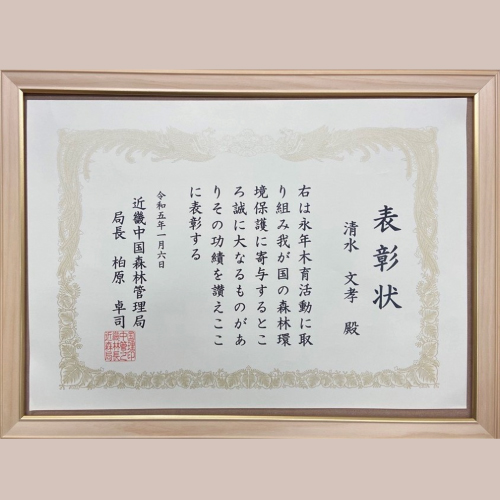 表彰状
清水 文孝 殿
右は永年木育活動に取
り組み我が国の森林環
境保護に寄与するとこ
ろ誠に大なるものがあ
りその功績を讃えここ
に表彰する
令和五年一月六日
近畿中国森林管理局
局長 柏原 卓司